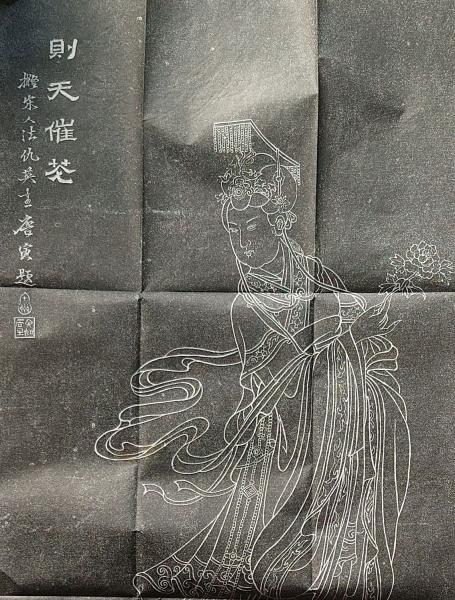 則天催花
擬宋人法仇英畫唐寅題